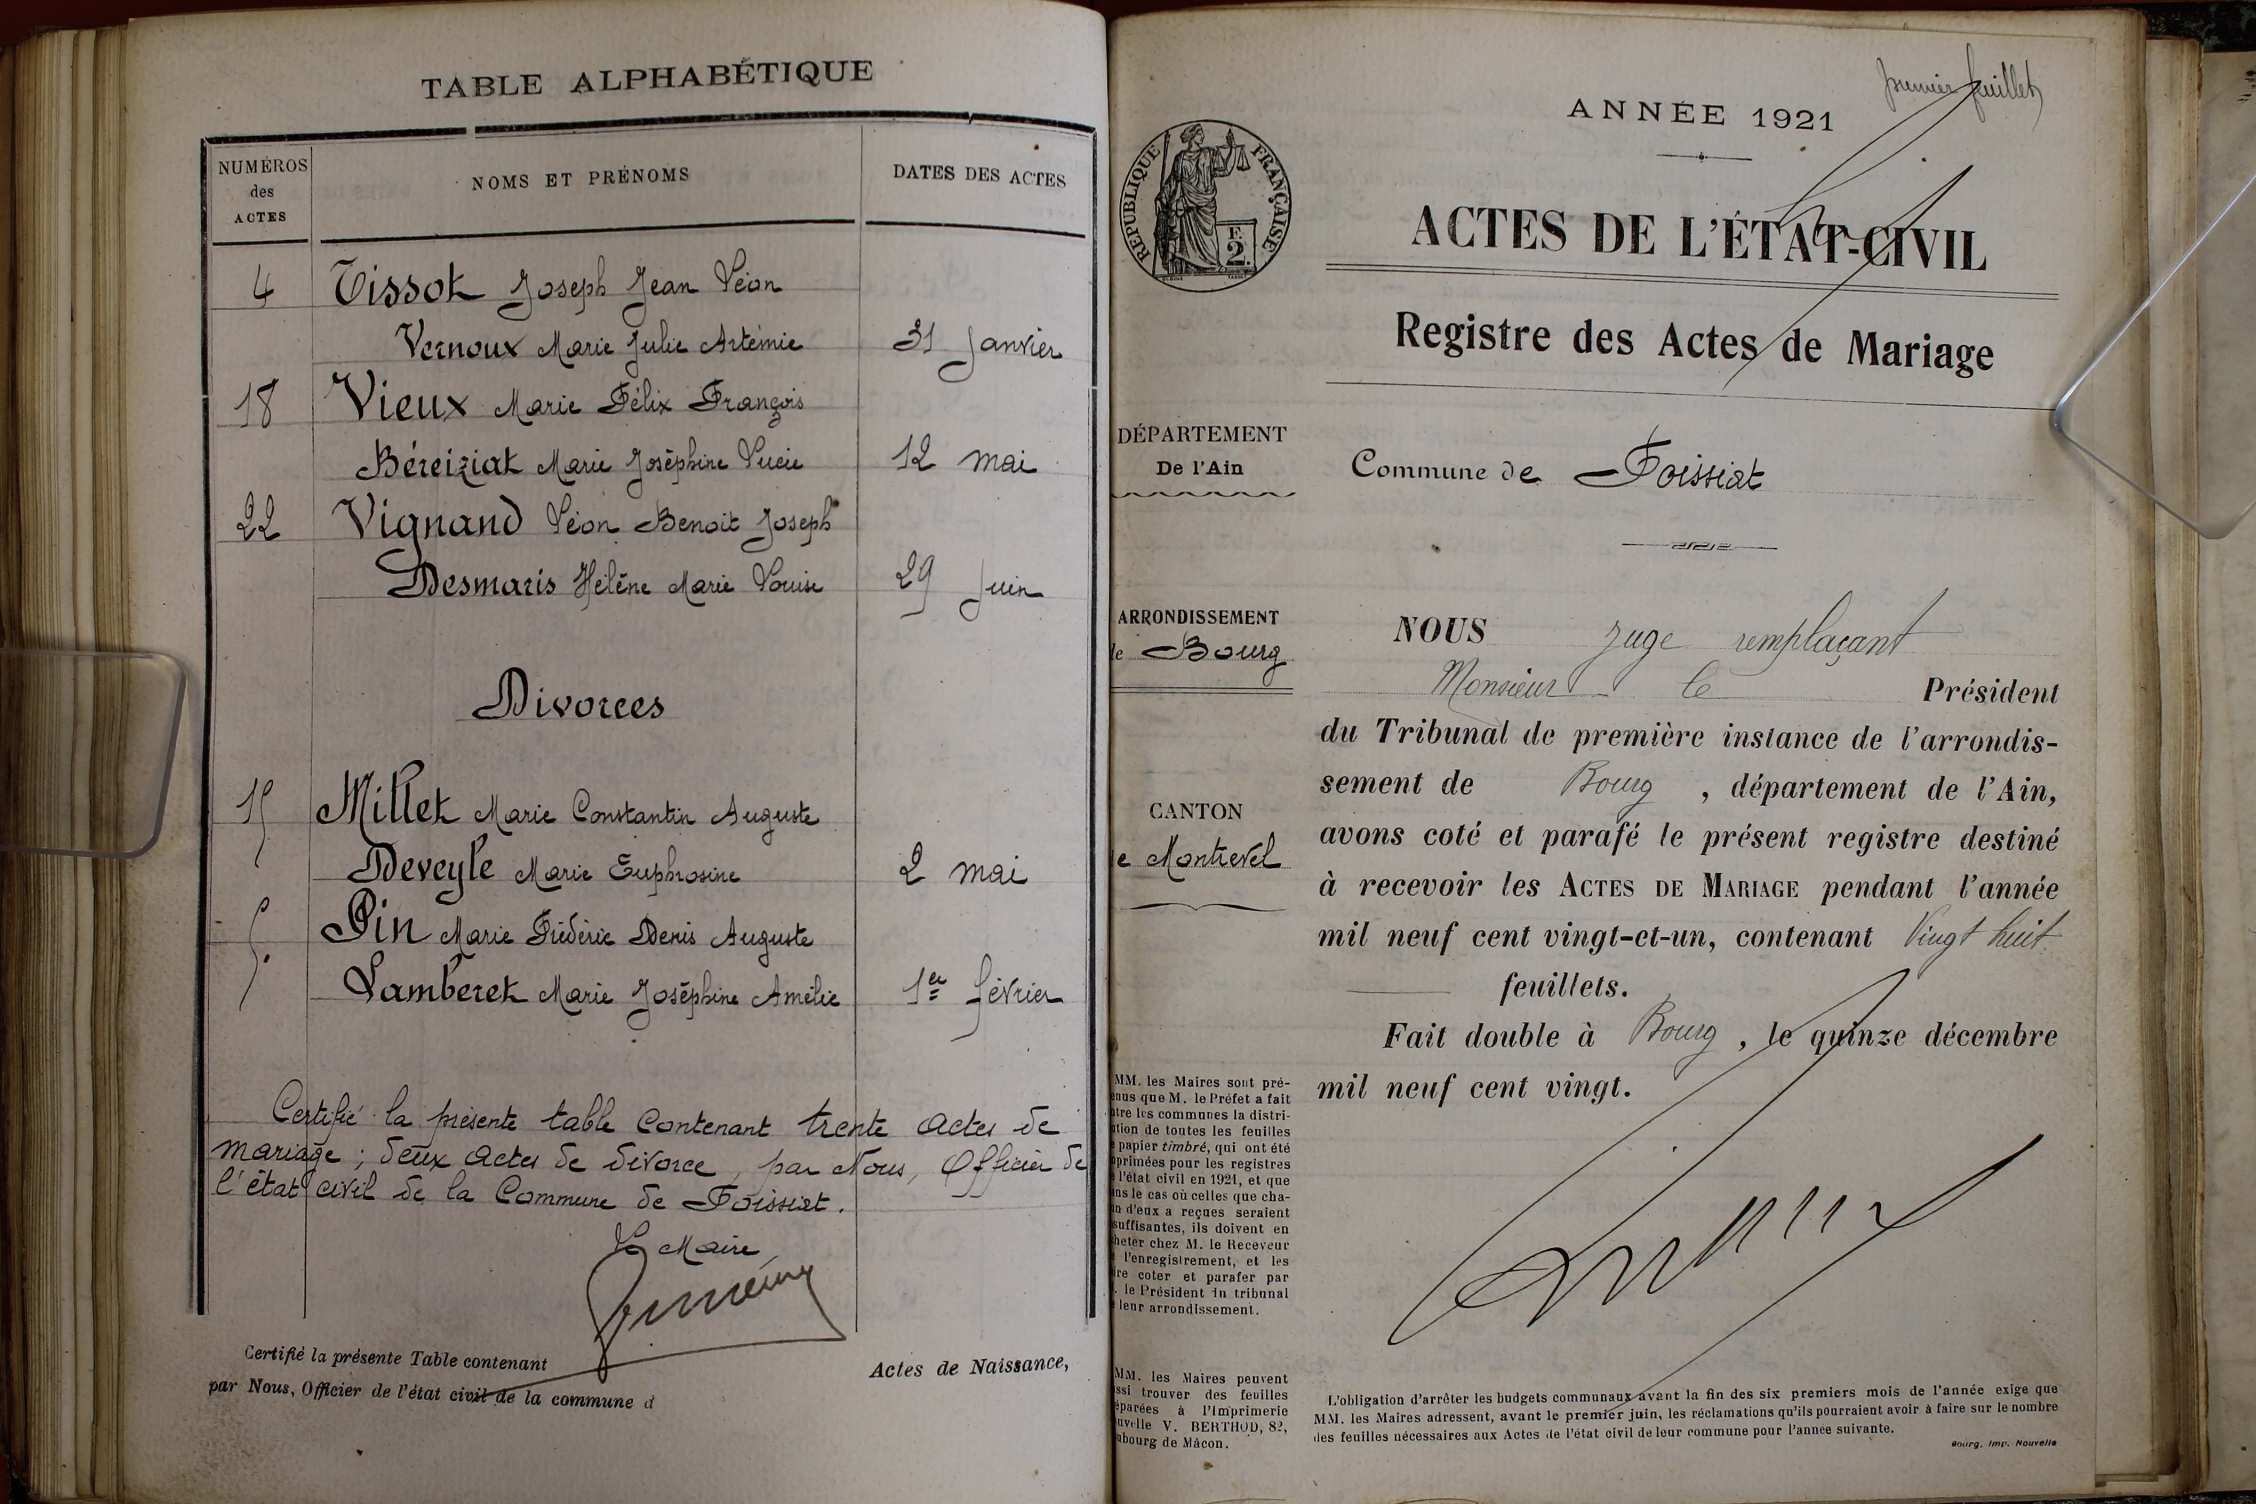 TABLE ALPHABÉTIQUE
NUMÉROS
des
ACTES
NOMS ET PRÉNOMS
DATES DES ACTES
4 Tissot Joseph Jean Léon
Vernoux Marie Julie Artémie 31 Janvier
18 Vieux Marie Félix François
Béreiziat Marie Joséphine Lucie 12 mai
22 Vignand Léon Benoit Joseph
Desmaris Hélène Marie Louise 29 Juin
Divorces
15 Millet Marie Constantin Auguste
Deveyle Marie Euphrosine 2 mai
5 Pin Marie Frédéric Denis Auguste
Lamberet Marie Joséphine Amélie 1er février
Certifié la présente table contenant trente actes de
mariage ; deux actes de divorce, par Nous, Officier de
l'état civil de la Commune de Foissiat.
Le Maire,
Certifié la présente Table contenant Actes de Naissance,
par Nous, Officier de l'état civil de la commune d
premier feuillet
ANNÉE 1921
RÉPUBLIQUE FRANÇAISE
F.
2.
ACTES DE L'ÉTAT-CIVIL
Registre des Actes de Mariage
DÉPARTEMENT
De l'Ain
Commune de Foissiat
ARRONDISSEMENT
de Bourg
CANTON
de Montrevel
NOUS juge remplaçant
Monsieur le Président
du Tribunal de première instance de l'arrondis-
sement de Bourg, département de l'Ain,
avons coté et parafé le présent registre destiné
à recevoir les ACTES DE MARIAGE pendant l'année
mil neuf cent vingt-et-un, contenant Vingt huit
feuillets.
Fait double à Bourg, le quinze décembre
mil neuf cent vingt.
MM. les Maires sont pré-
nus que M. le Préfet a fait
tre les communes la distri-
tion de toutes les feuilles
papier timbré, qui ont été
primées pour les registres
l'état civil en 1921, et que
ns le cas où celles que cha-
n d'eux a reçues seraient
suffisantes, ils doivent en
heter chez M. le Receveur
l'enregistrement, et les
re coter et parafer par
. le Président du tribunal
leur arrondissement.
MM. les Maires peuvent
ssi trouver des feuilles
éparées à l'Imprimerie
uvelle V. BERTHOD, 82,
ubourg de Mâcon.
L'obligation d'arrêter les budgets communaux avant la fin des six premiers mois de l'année exige que
MM. les Maires adressent, avant le premier juin, les réclamations qu'ils pourraient avoir à faire sur le nombre
des feuilles nécessaires aux Actes de l'état civil de leur commune pour l'année suivante.
Bourg, Imp. Nouvelle